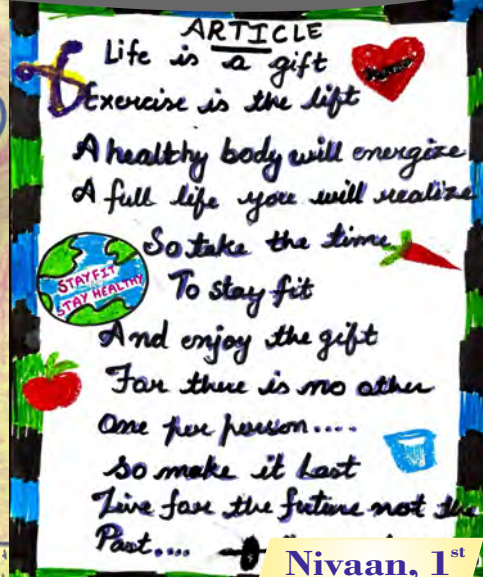 ARTICLE
Life is a gift
Exercise is the lift
A healthy body will energize
A full life you will realize
So take the time
To stay fit
STAY FIT
STAY HEALTHY
And enjoy the gift
For there is no other
One per person....
so make it Last
Live for the future not the
Past....
Nivaan, 1st